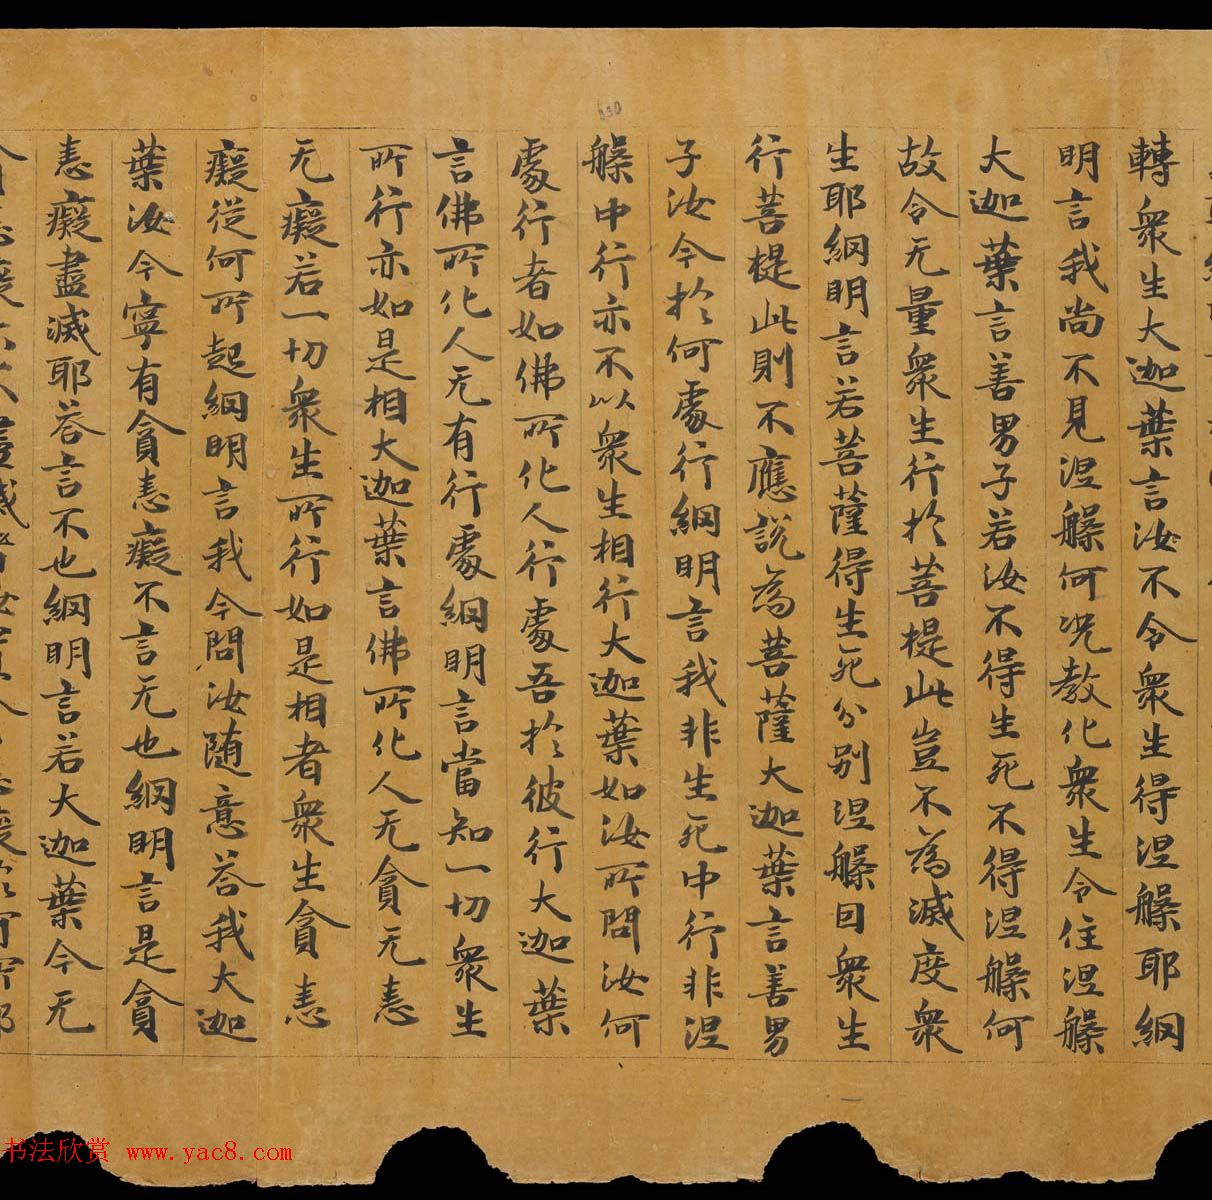 轉衆生大迦葉言汝不令衆生得涅槃耶網
明言我尚不見涅槃何况教化衆生令住涅槃
大迦葉言善男子若汝不得生死不得涅槃何
故令无量衆生行於菩提此豈不為滅度衆
生耶網明言若菩薩得生死分别涅槃回衆生
行菩提此則不應說為菩薩大迦葉言善男
子汝今於何處行網明言我非生死中行非涅
槃中行亦不以衆生相行大迦葉如汝所問汝何
處行者如佛所化人行處吾於彼行大迦葉
言佛所化人无有行處網明言當知一切衆生
所行亦如是相大迦葉言佛所化人无貪无恚
无癡若一切衆生所行如是相者衆生貪恚
癡從何所起網明言我今問汝随意答我大迦
葉汝今寧有貪恚癡不言无也網明言是貪
恚癡盡滅耶答言不也網明言若大迦葉今无
030
书法欣赏 www.yac8.com